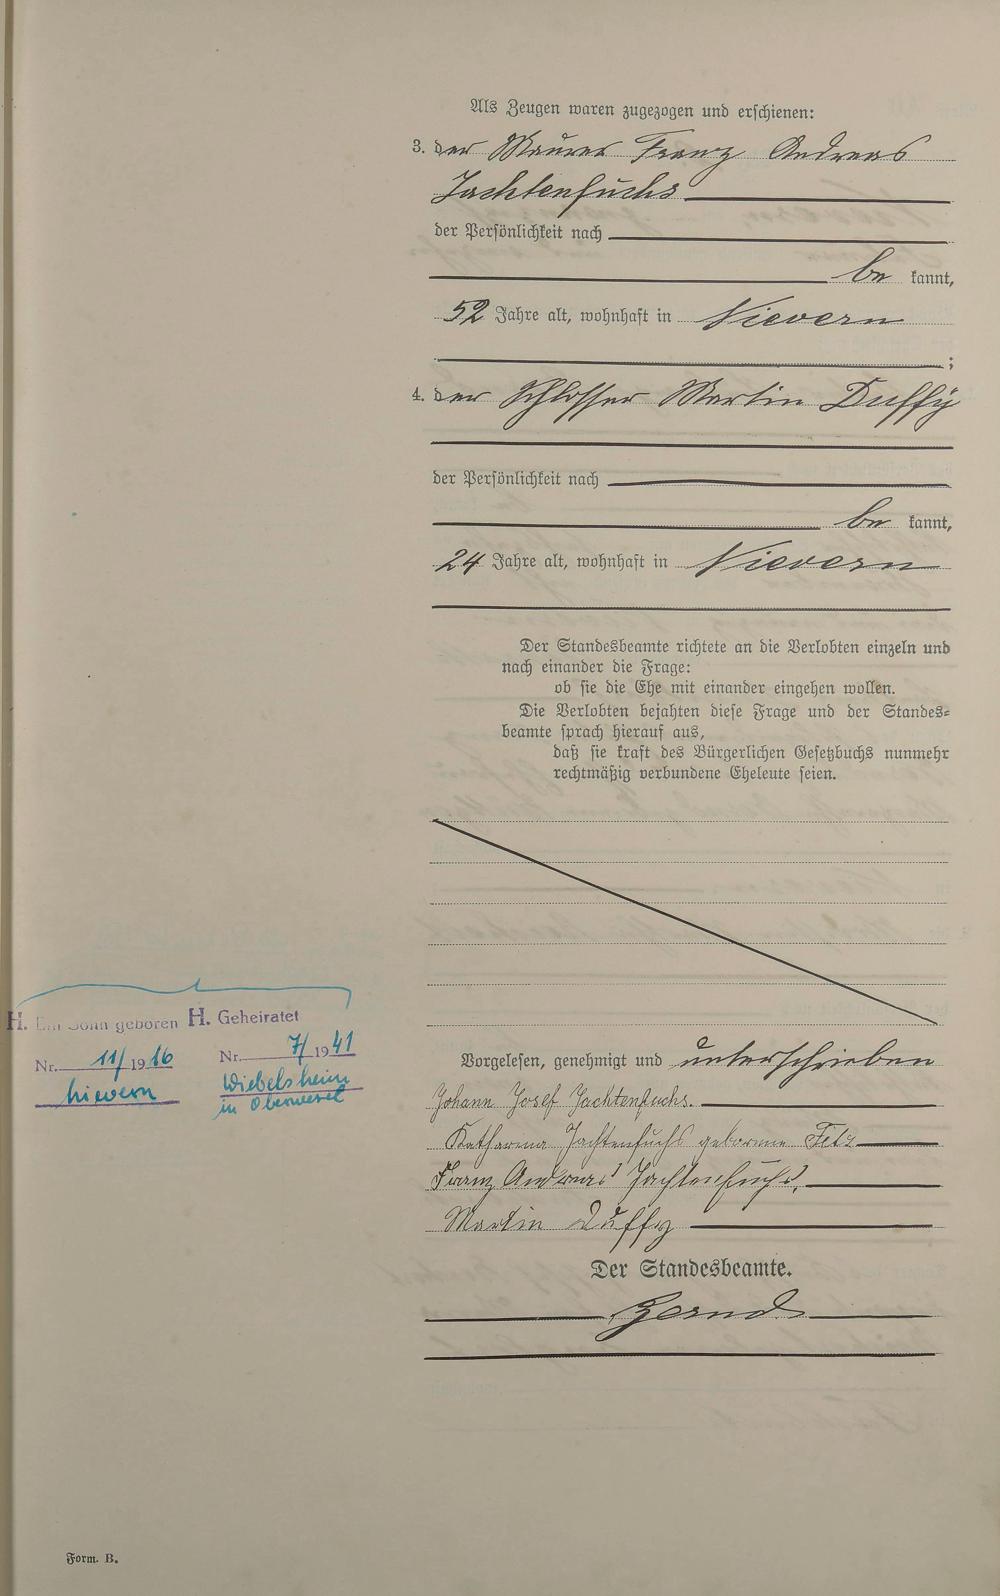 Als Zeugen waren zugezogen und erschienen:
3. der Maurer Franz Andreas
Jachtenfuchs
der Persönlichkeit nach
be kannt,
52 Jahre alt, wohnhaft in Nievern
;
4. der Schlosser Martin Duffÿ
der Persönlichkeit nach
be kannt,
24 Jahre alt, wohnhaft in Nievern
Der Standesbeamte richtete an die Verlobten einzeln und
nach einander die Frage:
ob sie die Ehe mit einander eingehen wollen.
Die Verlobten bejahten diese Frage und der Standes=
beamte sprach hierauf aus,
daß sie kraft des Bürgerlichen Gesetzbuchs nunmehr
rechtmäßig verbundene Eheleute seien.
H. Ein Sohn geboren
Nr. 11/1916
Nievern
H. Geheiratet
Nr. 7/1941
Wiebelsheim
in Oberwesel
Vorgelesen, genehmigt und unterschrieben
Johann Josef Jachtenfuchs.
Katharina Jachtenfuchs geborene
Franz Andreas Jachtenfuchs.
Martin Duffy
Der Standesbeamte.
Form. B.